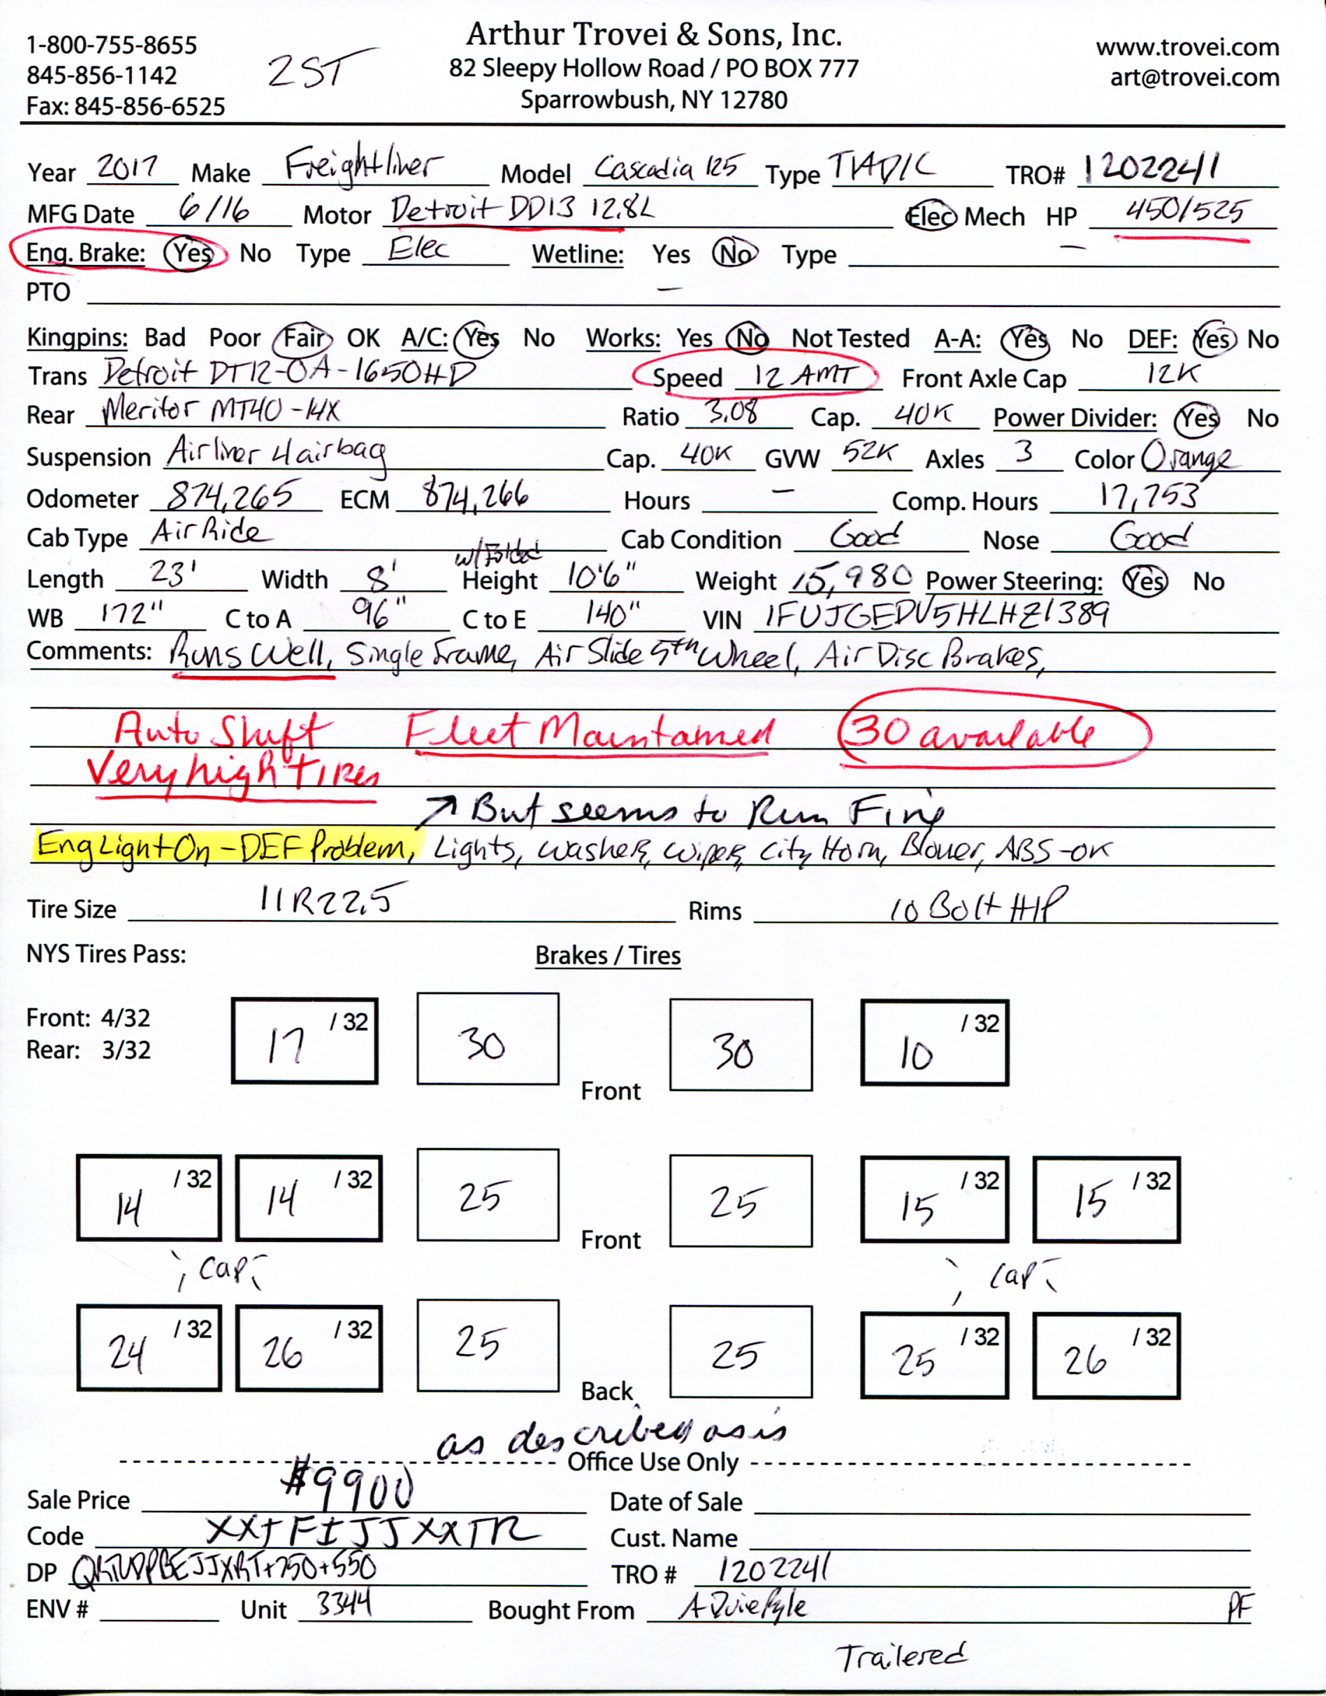 1-800-755-8655
845-856-1142
Fax: 845-856-6525
2ST
Arthur Trovei & Sons, Inc.
82 Sleepy Hollow Road / PO BOX 777
Sparrowbush, NY 12780
www.trovei.com
art@trovei.com
Year 2017 Make Freightliner Model Cascadia 125 Type T/A D/C TRO# 1202241
MFG Date 6/16 Motor Detroit DD13 12.8L Elec Mech HP 450/525
Eng. Brake: Yes No Type Elec Wetline: Yes No Type —
PTO —
Kingpins: Bad Poor Fair OK A/C: Yes No Works: Yes No Not Tested A-A: Yes No DEF: Yes No
Trans Detroit DT12-OA-1650HD Speed 12 AMT Front Axle Cap 12K
Rear Meritor MT40-14X Ratio 3.08 Cap. 40K Power Divider: Yes No
Suspension Airliner 4airbag Cap. 40K GVW 52K Axles 3 Color Orange
Odometer 874,265 ECM 874,266 Hours — Comp. Hours 17,753
Cab Type Air Ride Cab Condition Good Nose Good
w/Folded
Length 23' Width 8' Height 10'6" Weight 15,980 Power Steering: Yes No
WB 172" C to A 96" C to E 140" VIN 1FUJGEDV5HLHZ1389
Comments: Runs Well, Single Frame, Air Slide 5th Wheel, Air Disc Brakes,
Auto Shift Fleet Maintained 30 available
Very high Tires
But seems to Run Fine
Eng Light On - DEF Problem, Lights, Washer, Wiper, City Horn, Blower, ABS-OK
Tire Size 11R22.5 Rims 10 Bolt H/P
NYS Tires Pass: Brakes / Tires
Front: 4/32
Rear: 3/32
17 /32 30 Front 30 10 /32
14 /32 14 /32 25 Front 25 15 /32 15 /32
Cap Cap
24 /32 26 /32 25 Back 25 25 /32 26 /32
as described as is
Office Use Only
Sale Price $9900 Date of Sale
Code XXJFIJJXXTR Cust. Name
DP +750+550 TRO # 1202241
ENV # Unit 3344 Bought From A Duie Pyle PF
Trailered